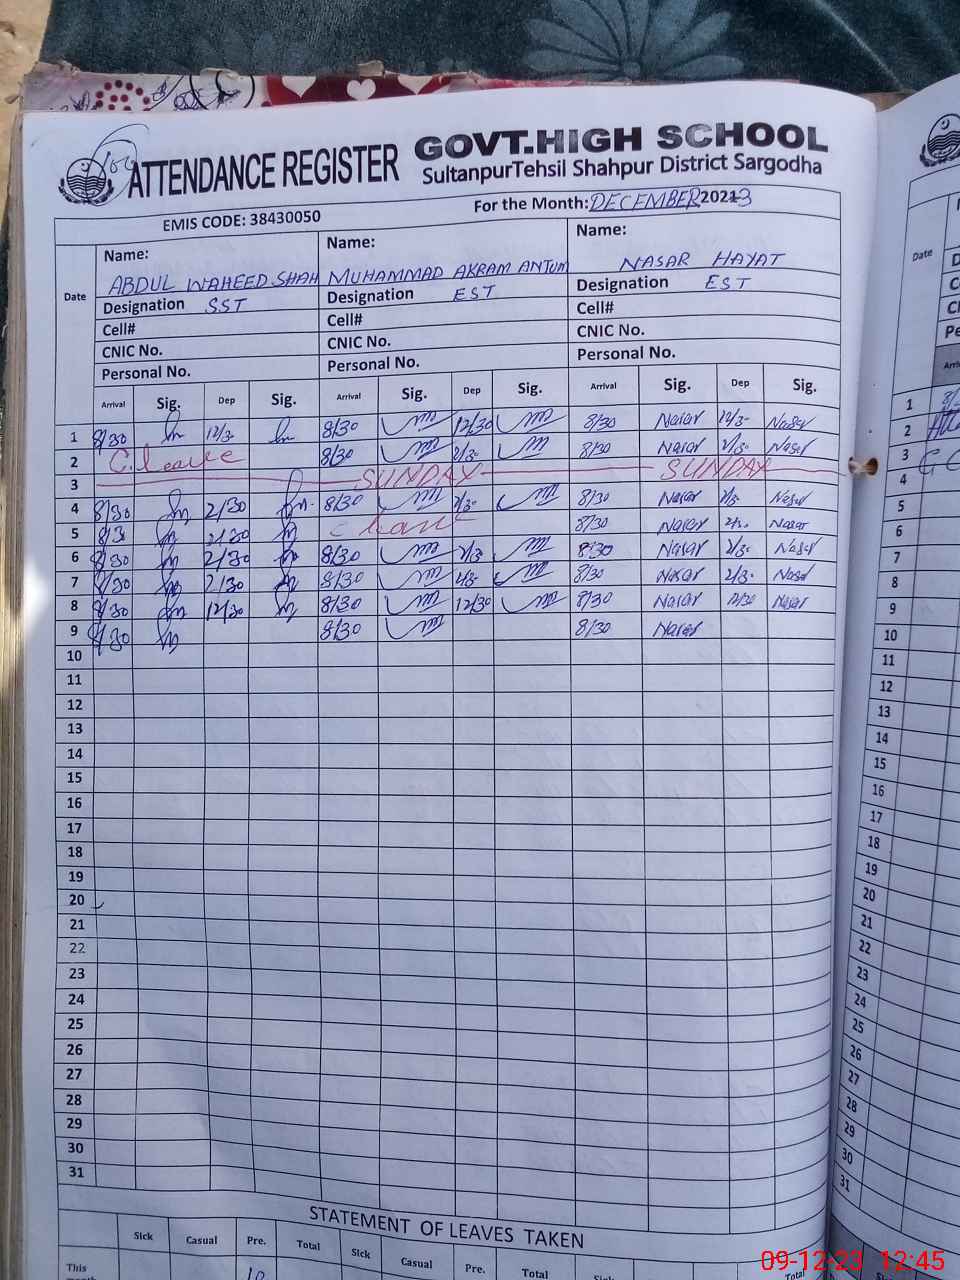 ATTENDANCE REGISTER
GOVT.HIGH SCHOOL
SultanpurTehsil Shahpur District Sargodha
EMIS CODE: 38430050
For the Month: DECEMBER 2023
Date Name: Name: Name:
ABDUL WAHEED SHAH MUHAMMAD AKRAM ANTUM NASAR HAYAT
Designation SST Designation EST Designation EST
Cell# Cell# Cell#
CNIC No. CNIC No. CNIC No.
Personal No. Personal No. Personal No.
Arrival Sig. Dep Sig. Arrival Sig. Dep Sig. Arrival Sig. Dep Sig.
1 8/30 12/3 8/30 12/30 8/30 Nasar 12/3 Nasar
2 C.leave 8/30 2/3 8/30 Nasar 2/3 Nasar
3 SUNDAY SUNDAY
4 8/30 2/30 8/30 2/3 8/30 Nasar 2/3 Nasar
5 8/3 2/30 C leave 8/30 Nasar 2/3 Nasar
6 8/30 2/30 8/30 2/3 8/30 Nasar 2/3 Nasar
7 8/30 2/30 8/30 2/3 8/30 Nasar 2/3 Nasar
8 8/30 12/30 8/30 12/30 8/30 Nasar 12/30 Nasar
9 8/30 8/30 8/30 Nasar
10
11
12
13
14
15
16
17
18
19
20
21
22
23
24
25
26
27
28
29
30
31
STATEMENT OF LEAVES TAKEN
Sick Casual Pre. Total Sick Casual Pre. Total Sick Total
This
10
Date
Arri
1
2
3
4
5
6
7
8
9
10
11
12
13
14
15
16
17
18
19
20
21
22
23
24
25
26
27
28
29
30
31
09-12-23 12:45